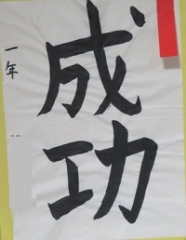 成功
一年